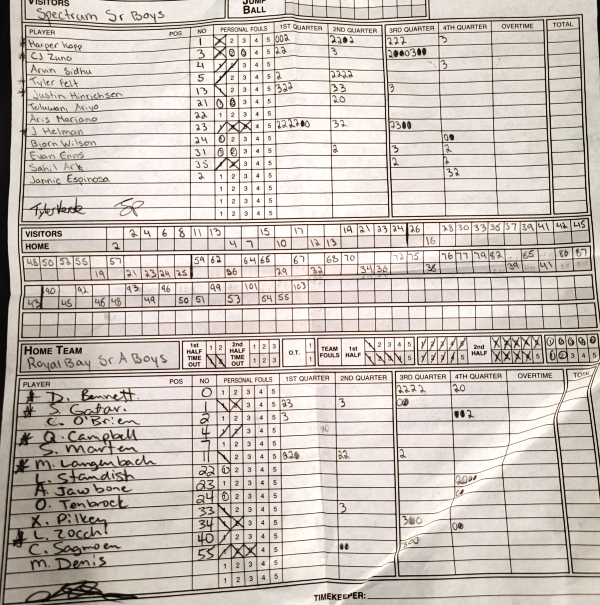 VISITORS Spectrum Sr Boys JUMP BALL
PLAYER POS NO PERSONAL FOULS 1ST QUARTER 2ND QUARTER 3RD QUARTER 4TH QUARTER OVERTIME TOTAL
Harper Kopp 1 2 3 4 5 002 2202 222 3
CJ Zuno 3 4 5 22 3
Arvin Sidhu 4 3 4 5 3
Tyler Felt 5 3 4 5 2 2222
Justin Hinrichsen 13 2 3 4 5 322 33 3
Toluwani Ariyo 21 3 4 5 20
Aris Mariano 22 1 2 3 4 5
J Helman 23 4 5 32
Bjorn Wilson 24 2 3 4 5
Evan Enns 31 3 4 5 2 3 2
Sahil 35 3 4 5 2 2
Jannie Espinosa 2 1 2 3 4 5 32
1 2 3 4 5
1 2 3 4 5
VISITORS 2 4 6 8 11 13 15 17 19 21 23 24 26 28 30 33 35 37 39 41 42 45
HOME 2 4 7 10 12 13 16
48 50 53 55 57 59 62 64 65 67 68 70 72 75 76 77 79 82 85 80 87
19 21 23 24 25 26 29 32 34 36 38 39 41
90 92 93 96 99 101 103
43 45 46 48 49 50 51 53 54 55
HOME TEAM Royal Bay Sr A Boys
1st HALF TIME OUT 2nd HALF TIME OUT 1 2 3 O.T. 1 2 3 TEAM FOULS 1st HALF 2nd HALF
PLAYER POS NO PERSONAL FOULS 1ST QUARTER 2ND QUARTER 3RD QUARTER 4TH QUARTER OVERTIME
D. Bennett 0 1 2 3 4 5 2222 20
S. Gatari 1 3 4 5 23 3
C. O'Brien 2 1 2 3 4 5 3
Q. Campbell 4 3 4 5
S. Marten 7 1 2 3 4 5
M. Langenbach 11 2 3 4 5 22 2
L. Standish 22 2 3 4 5
A. Jawbone 23 1 2 3 4 5
O. Tenbrock 24 2 3 4 5
X. Pilkey 33 2 3 4 5 3
L. Zocchi 34 3 4 5
C. Sagmoen 40 1 2 3 4 5
M. Denis 55 4 5
1 2 3 4 5
TIMEKEEPER: